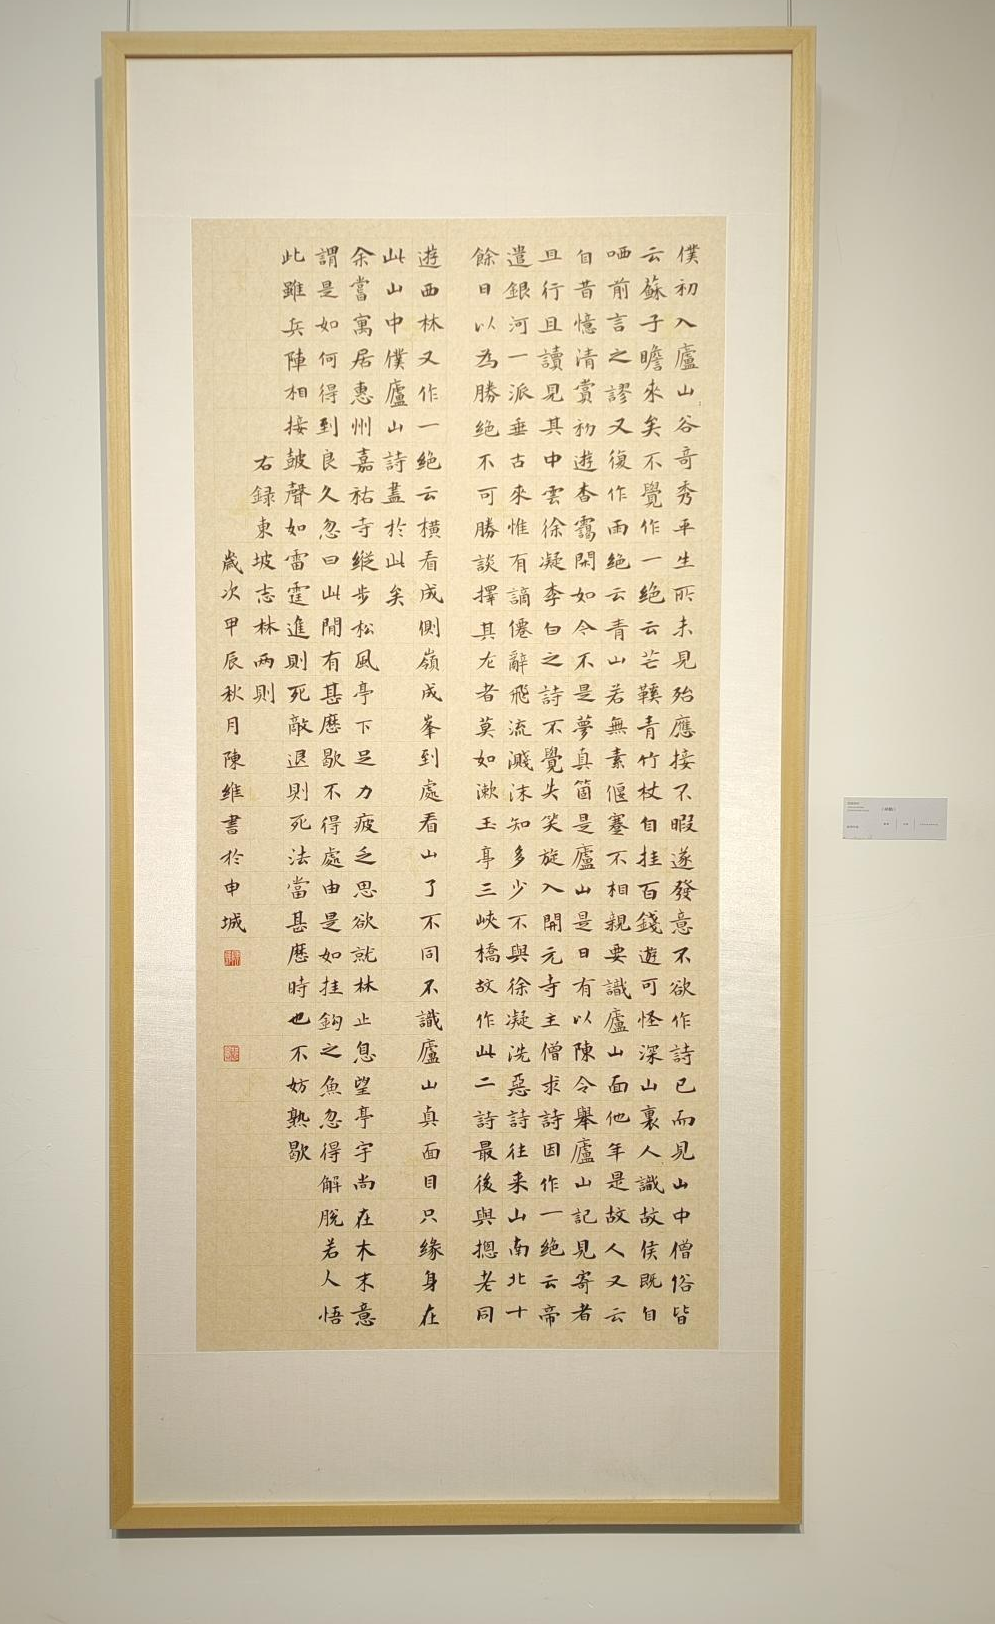 僕初入廬山谷奇秀平生所未見殆應接不暇遂發意不欲作詩已而見山中僧俗皆
云蘇子瞻來矣不覺作一絕云芒鞵青竹杖自挂百錢遊可怪深山裏人識故侯既自
哂前言之謬又復作兩絕云青山若無素偃蹇不相親要識廬山面他年是故人又云
自昔憶清賞初遊杳靄間如今不是夢真箇是廬山是日有以陳令舉廬山記見寄者
且行且讀見其中雲徐凝李白之詩不覺失笑旋入開元寺主僧求詩因作一絕云帝
遣銀河一派垂古來惟有謫僊辭飛流濺沫知多少不與徐凝洗惡詩往来山南北十
餘日以為勝絕不可勝談擇其尤者莫如漱玉亭三峽橋故作此二詩最後與摠老同
遊西林又作一絕云橫看成側嶺成峯到處看山了不同不識廬山真面目只緣身在
此山中僕廬山詩盡於此矣
余嘗寓居惠州嘉祐寺縱步松風亭下足力疲乏思欲就林止息望亭宇尚在木末意
謂是如何得到良久忽曰此間有甚麽歇不得處由是如挂鈎之魚忽得解脫若人悟
此雖兵陣相接皷聲如雷霆進則死敵退則死法當甚麽時也不妨熟歇
右録東坡志林兩則
歲次甲辰秋月陳維書於申城